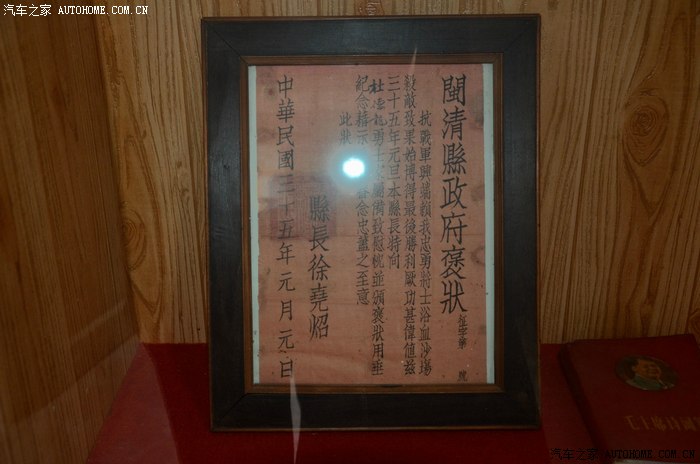 汽车之家 AUTOHOME.COM.CN
閩清縣政府褒狀
征字第 號
抗戰軍興端賴我忠勇將士浴血沙場
殺敵致果始博得最後勝利厥功甚偉值兹
三十五年元旦本縣長特向
杜 勇士 屬備致慰忱並頒褒狀用垂
紀念藉示 念忠藎之至意
此狀
縣長徐堯炤
中華民國三十五年元月元日
毛主席诗詞
汽车之家 AUTOHOME.COM.CN